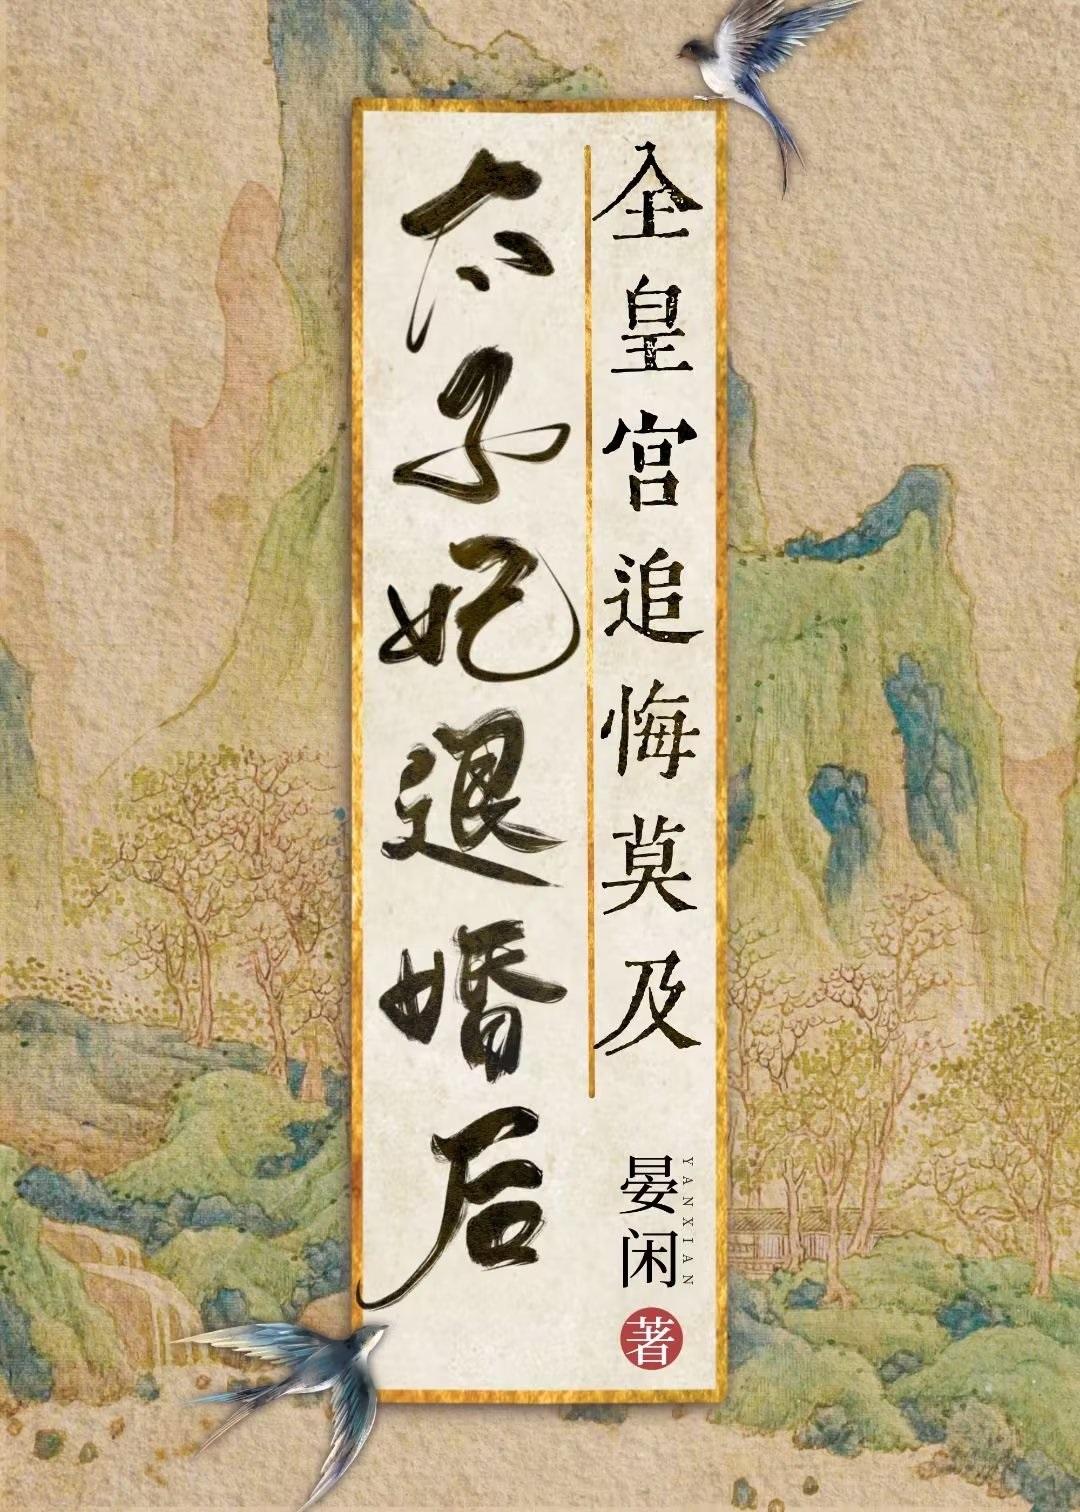 太子妃退婚后
全皇宫追悔莫及
晏闲
YANXIAN
著